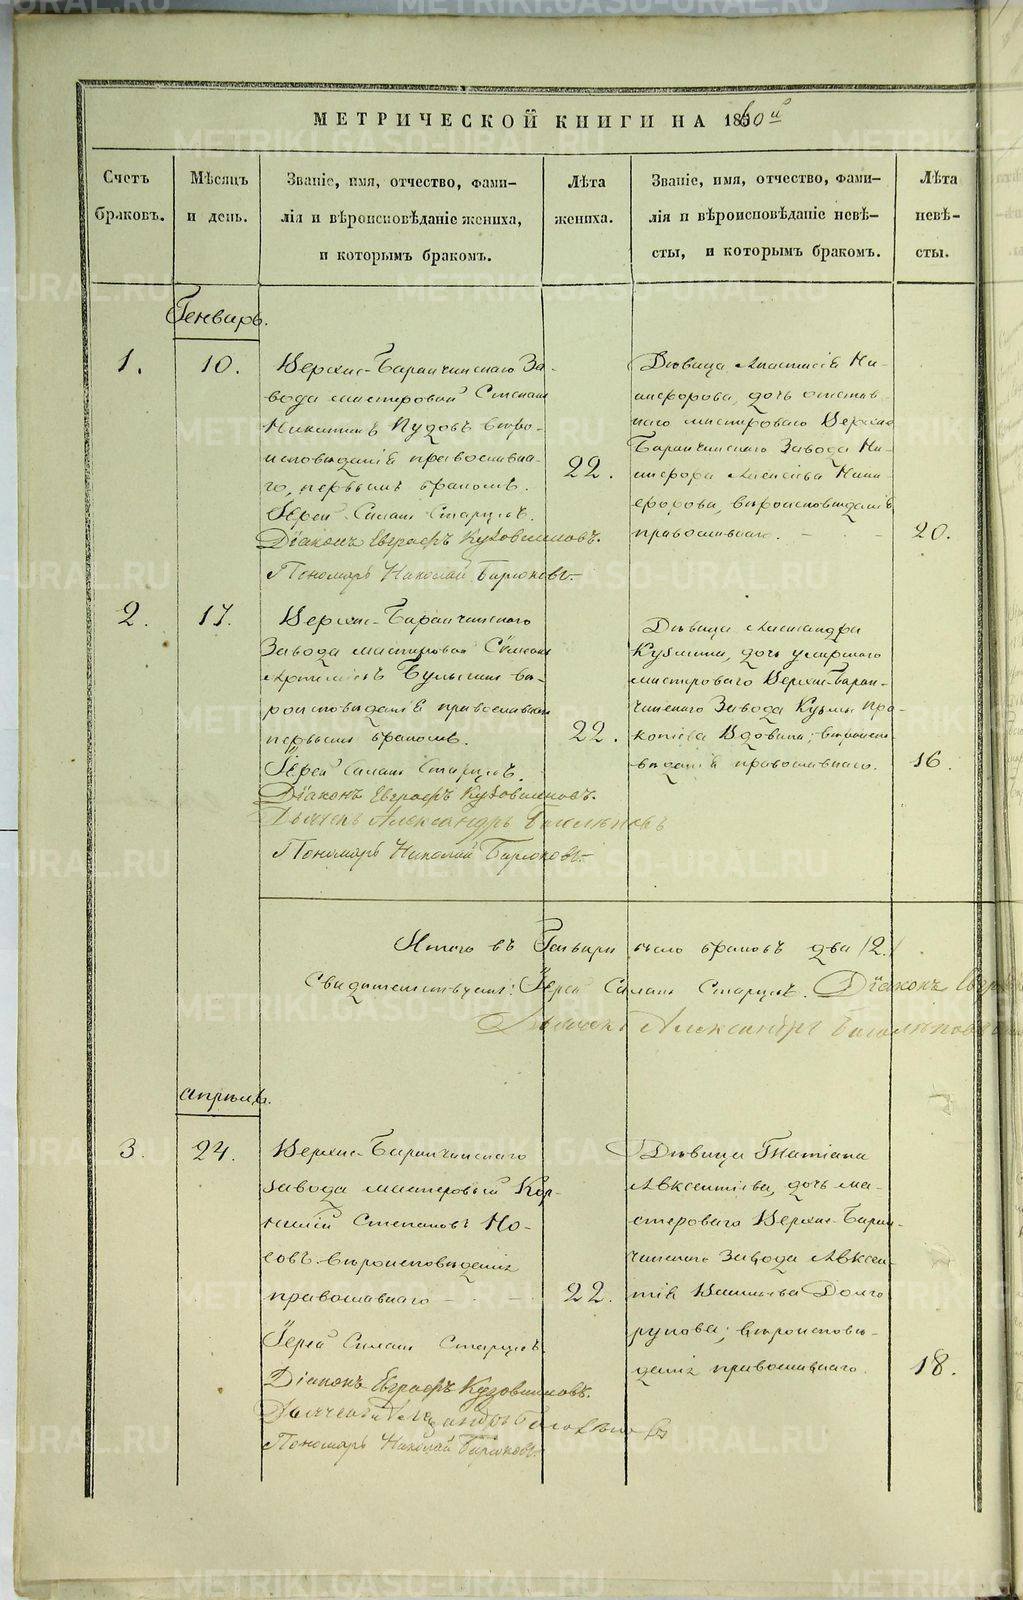 МЕТРИЧЕСКОЙ КНИГИ НА 1860й
Счетъ
браковъ.
Мѣсяцъ
и день.
Званіе, имя, отчество, фами-
лія и вѣроисповѣданіе жениха,
и которымъ бракомъ.
Лѣта
жениха.
Званіе, имя, отчество, фами-
лія и вѣроисповѣданіе невѣ-
сты, и которымъ бракомъ.
Лѣта
невѣ-
сты.
Генварь.
1.
10.
Верхне-Баранчинскаго За-
вода мастеровой Степанъ
Никитинъ Пудовъ вѣро-
исповѣданія православна-
го, первымъ бракомъ.
Іерей Старцевъ.
Діаконъ Евграфъ Кузовниковъ.
Пономарь Николай Бирюковъ.
22.
Дѣвица Анастасія Ни-
кифорова, дочь отстав
наго мастероваго Верхне
Баранчинскаго Завода Ни-
кифора Алексѣева Ники-
форова, вѣроисповѣданія
православнаго.
20.
2.
17.
Верхне-Баранчинскаго
Завода мастеровой
вѣ-
роисповѣданія православнаго
первымъ бракомъ.
Іерей Старцевъ.
Діаконъ Евграфъ Кузовниковъ.
Дьячекъ Александръ
Пономарь Николай Бирюковъ.
22.
Дѣвица Александра
Кузмина, дочь умершаго
мастероваго Верхне-Баран-
чинскаго Завода Кузмы Про-
копьева Вдовина, вѣроиспо-
вѣданія православнаго.
16.
Итого въ Генварѣ число браковъ два /2./
Свидетельствуемъ: Іерей Старцевъ. Діаконъ
Дьячекъ Александръ
Апрѣль.
3.
24.
Верхне-Баранчинскаго
завода мастеровый Кор-
нилій Степановъ Но-
совъ вѣроисповѣданія
православнаго
Іерей Старцевъ
Діаконъ Евграфъ Кузовниковъ.
Дьячекъ Александръ
Пономарь Николай Бирюковъ.
22.
Дѣвица Татіана
Авксентіева, дочь ма-
стероваго Верхне-Баран-
чинскаго Завода Авксен-
тія Васильева Долго
рукова, вѣроисповѣ-
данія православнаго.
18.
METRIKI.GASO-URAL.RU